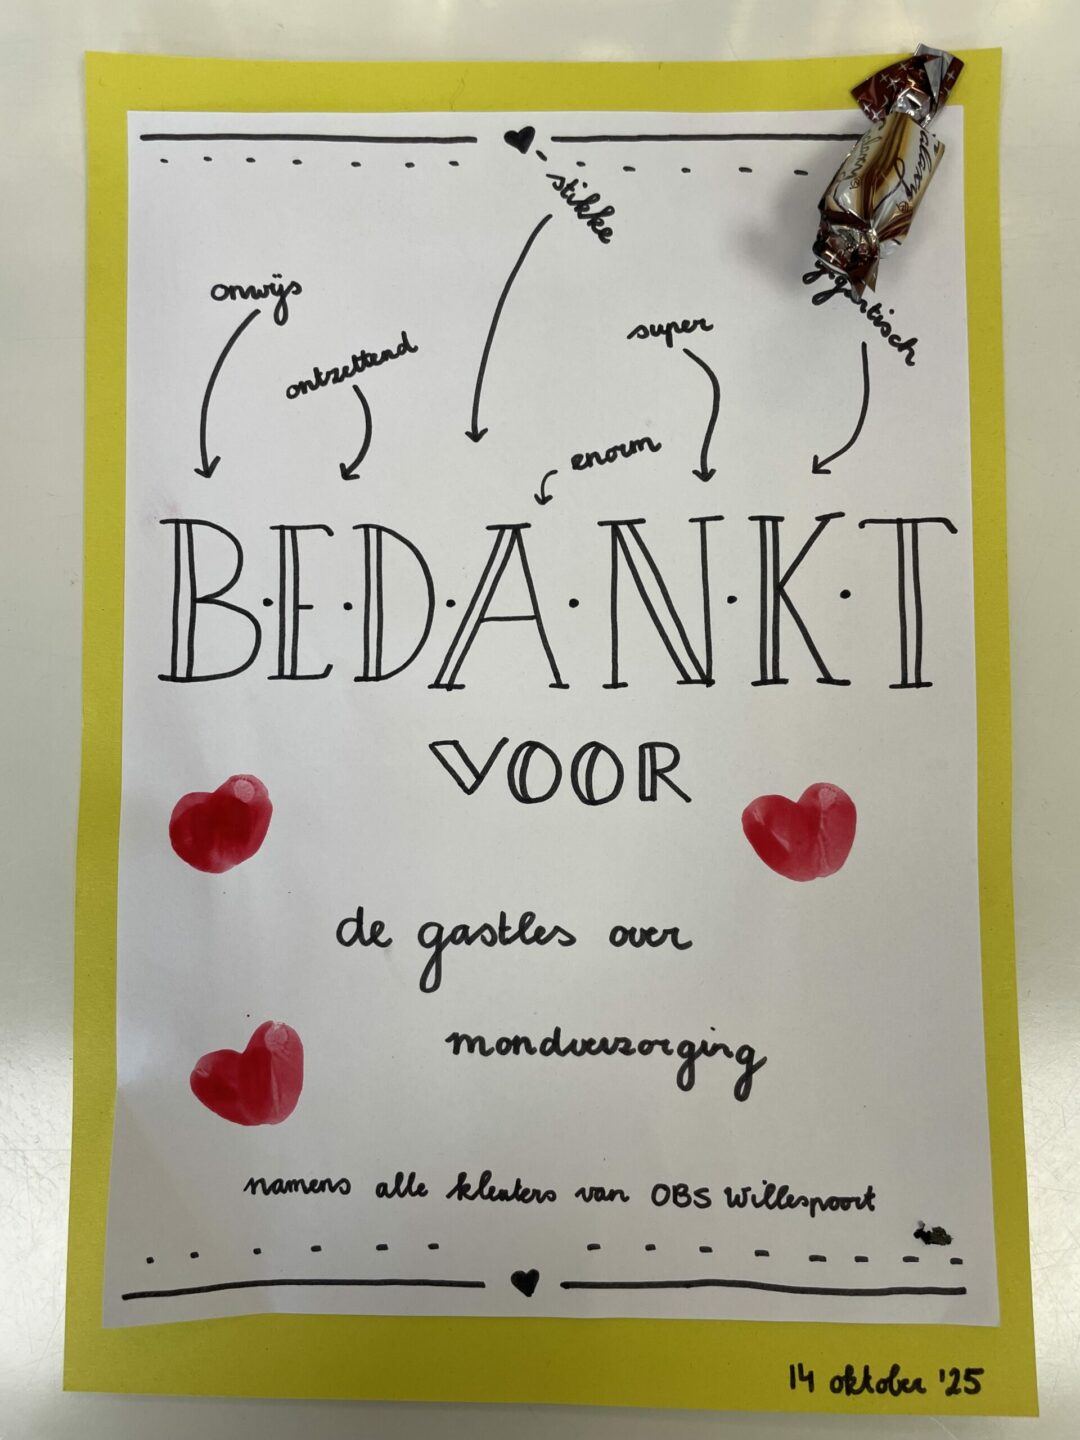 stikke
onwijs
ontzettend
super
gigantisch
enorm
B.E.D.A.N.K.T
VOOR
de gastles over
mondverzorging
namens alle kleuters van OBS Willespoort
14 oktober '25